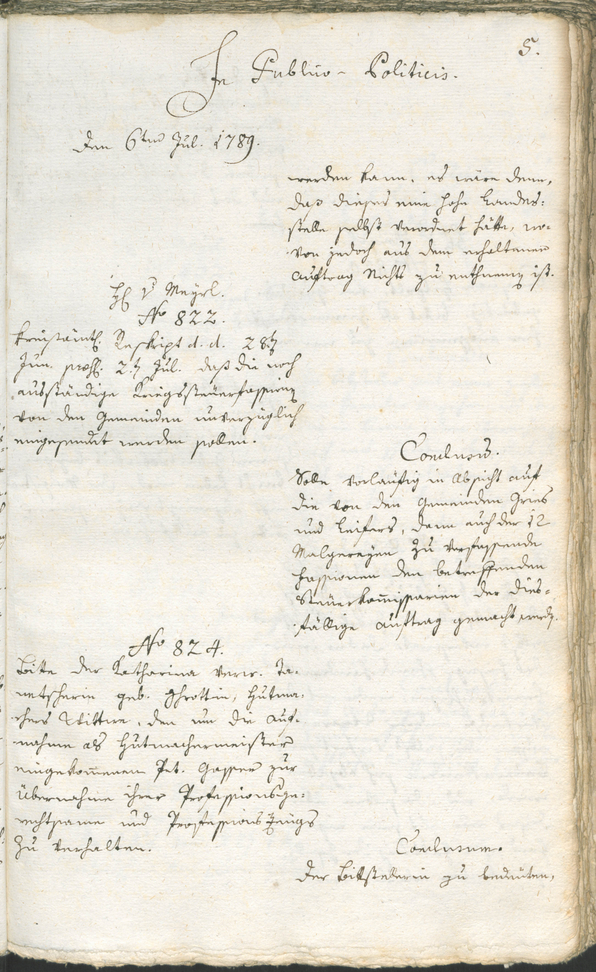 5.
In Publico-Politicis.
den 6ten Jul. 1789.
werden kann, es wäre denn,
daß dieses eine hohe Landes-
stelle selbst verordnet hätte, wo-
von jedoch aus dem erhaltenen
Auftrag Nichts zu entnemen ist.
H. v Meyrl.
No 822.
Kreisämtl. Reskript d. d. 28t
Jun. pres. 2t Jul. daß die noch
ausständige Kriegssteuerfassionen
von den Gemeinden unverzüglich
eingesendet werden sollen.
Conclusum.
Solle vorläufig in Absicht auf
die von den Gemeinden Gries
und Leifers, dann auch der 12
Malgereyen zu verfassende
Fassionen den betreffenden
Steuerkommissarien der dies-
fällige Auftrag gemacht werden.
No 824.
Bitte der Katharina verw. Ta-
netscherin geb. Schrottin, Hutma-
chers Wittwe, den um die Auf-
nahme als Hutmachermeister
eingekommenen Pet. Gasser zur
Übernahme ihrer Professionsge-
rechtsame und Professions Zeugs
zu verhalten.
Conclusum.
Der Bittstellerin zu bedeuten,